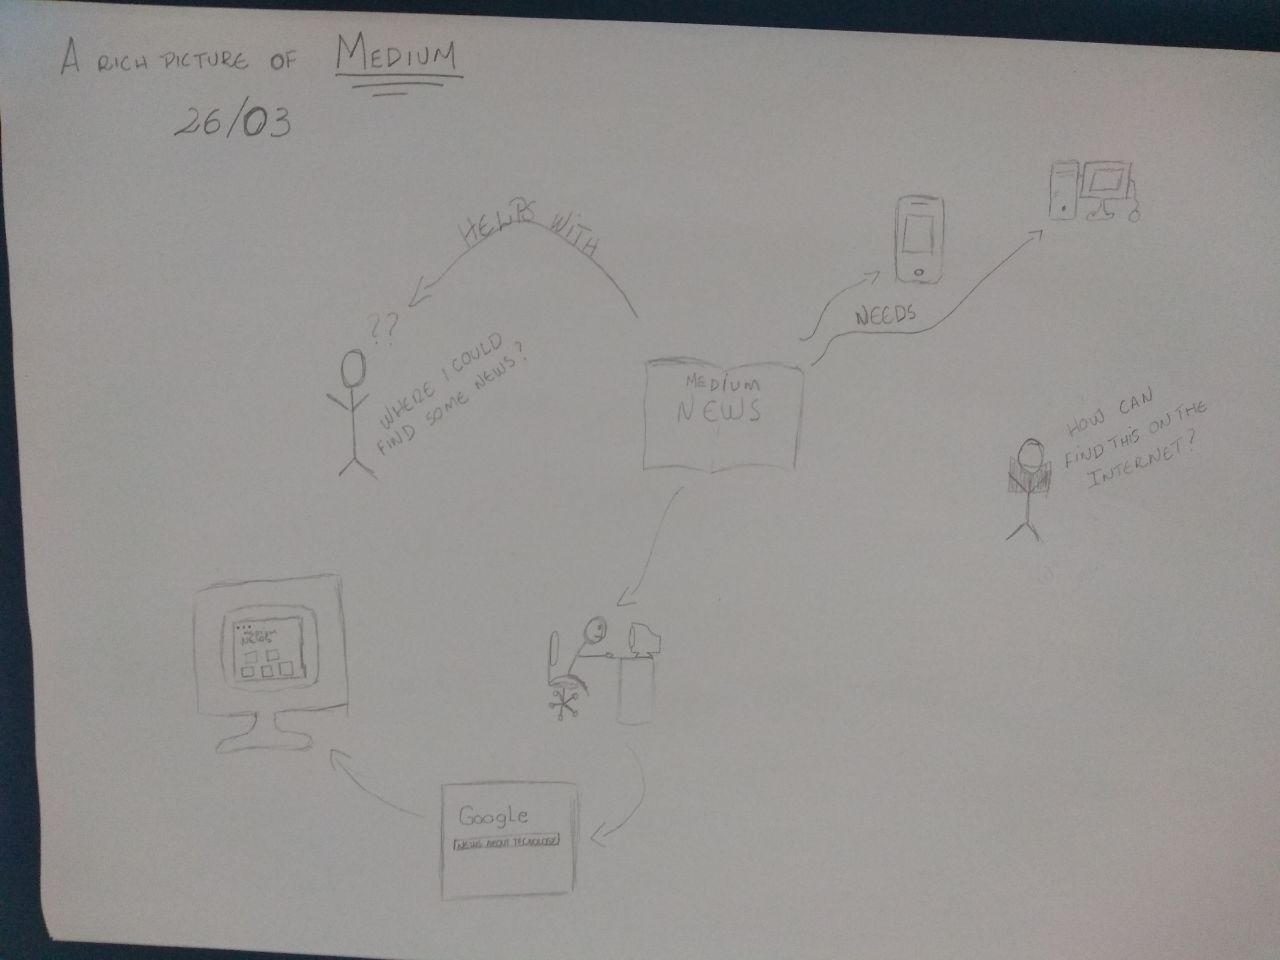 A RICH PICTURE OF MEDIUM
26/03
HELPS WITH
??
WHERE I COULD
FIND SOME NEWS?
NEEDS
MEDIUM
NEWS
HOW CAN
FIND THIS ON THE
INTERNET?
MEDIUM
NEWS
Google
NEWS ABOUT TECNOLOGY